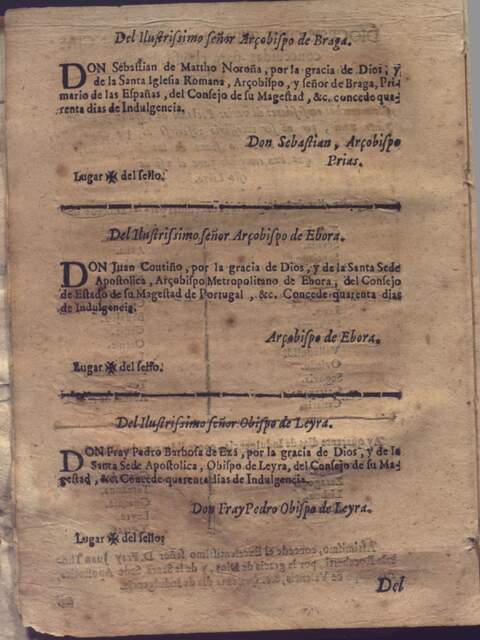 Del Ilustrissimo señor Arçobispo de Braga.
DON Sebastian de Mattho Noroña, por la gracia de Dios, y
de la Santa Iglesia Romana, Arçobispo, y señor de Braga, Pri
mario de las Españas, del Consejo de su Magestad, &c. concede qua-
renta dias de Indulgencia.
Don Sebastian, Arçobispo
Prias.
Lugar ✠ del sello.
Del Ilustrissimo señor Arçobispo de Ebora.
DON Juan Coutiño, por la gracia de Dios, y de la Santa Sede
Apostolica, Arçobispo Metropolitano de Ebora, del Consejo
de Estado de su Magestad de Portugal, &c. Concede quarenta dias
de Indulgencia.
Arçobispo de Ebora.
Lugar ✠ del sello.
Del Ilustrissimo señor Obispo de Leyra.
DON Fray Pedro Barbosa de Eza, por la gracia de Dios, y de la
Santa Sede Apostolica, Obispo de Leyra, del Consejo de su Ma-
gestad, &c. Concede quarenta dias de Indulgencia.
Don Fray Pedro Obispo de Leyra.
Lugar ✠ del sello.
Del